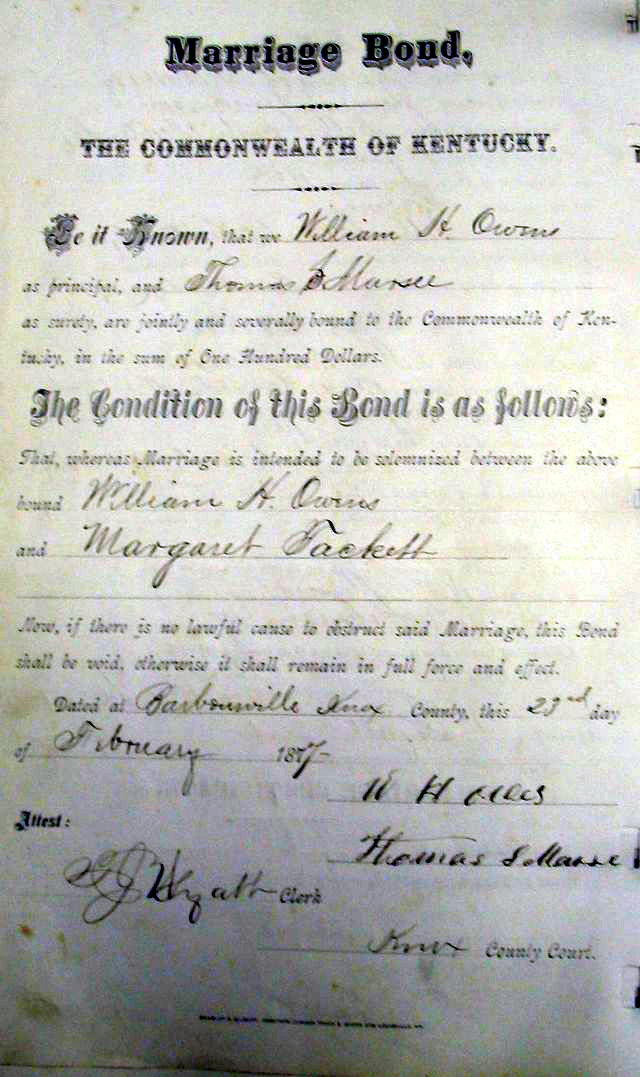 Marriage Bond,
THE COMMONWEALTH OF KENTUCKY.
Be it Known, that we William H. Owens
as principal, and Thomas S Marsee
as surety, are jointly and severally bound to the Commonwealth of Ken-
tucky, in the sum of One Hundred Dollars.
The Condition of this Bond is as follows:
That, whereas Marriage is intended to be solemnized between the above
bound William H. Owens
and Margaret Tackett
Now, if there is no lawful cause to obstruct said Marriage, this Bond
shall be void, otherwise it shall remain in full force and effect.
Dated at Barbourville Knox County, this 23rd day
of February 187
W H
Attest:
Thomas S Marsee
Wyatt Clerk
Knox County Court.